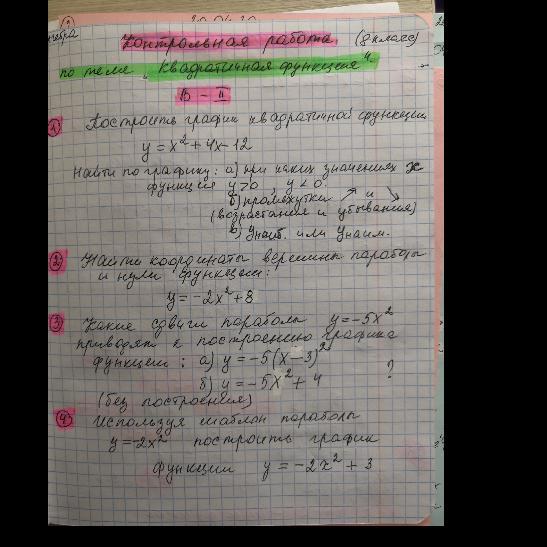 Контрольная работа (8 класс)
по теме „Квадратичная функция"
В – II
① Построить график квадратичной функции
y = x² + 4x - 12
Найти по графику: а) при каких значениях x
функция y > 0, y < 0.
б) промежутки ↗ и ↘
(возрастания и убывания)
в) yнаиб. или yнаим.
② Найти координаты вершины параболы
и нули функции:
y = -2x² + 8
③ Какие сдвиги параболы y = -5x²
приводят к построению графика
функции: а) y = -5(x - 3)²
б) y = -5x² + 4 ?
(без построения)
④ Используя шаблон параболы
y = -2x² построить график
функции y = -2x² + 3